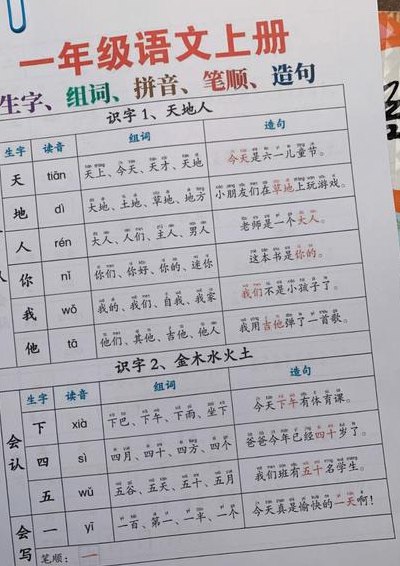 一年级语文上册
生字、组词、拼音、笔顺、造句
识字1、天地人
生字 读音 组词 造句
天 tiān 天上、今天、天才、天地 今天是六一儿童节。
地 dì 大地、土地、草地、地方 小朋友们在草地上玩游戏。
人 rén 大人、人们、主人、男人 老师是一个大人。
你 nǐ 你们、你好、你的、迷你 这本书是你的。
我 wǒ 我的、我们、自我、我家 我们不是小孩子了。
他 tā 他们、其他、吉他、他人 我用吉他弹了一首歌。
识字2、金木水火土
生字 读音 组词 造句
会认
下 xià 下巴、下午、下雨、坐下 今天下午有体育课。
四 sì 四月、四十、四方、四个 爸爸今年已经四十岁了。
五 wǔ 五谷、五天、五十、五月 我们班有五十名学生。
会写
一 yī 一百、第一、一半、一个 今天真是愉快的一天啊！
笔顺： 一